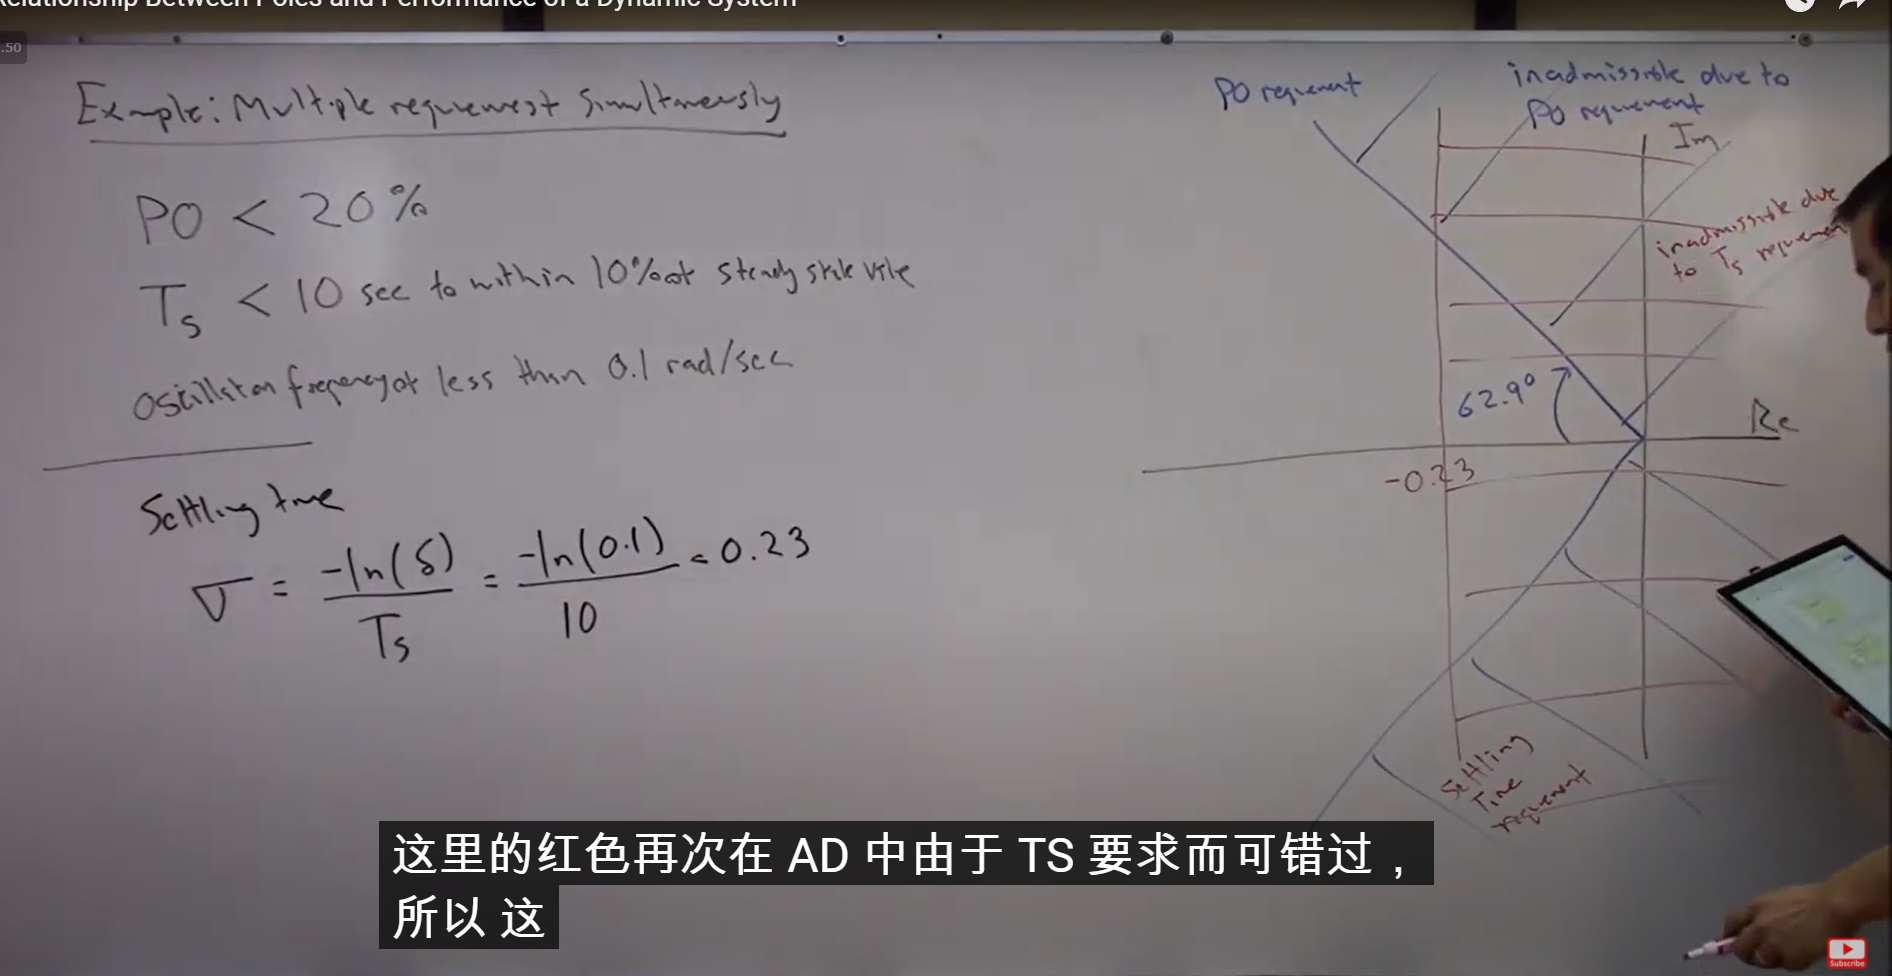 Relationship Between Poles and Performance of a Dynamic System
.50
Example: Multiple requirement Simultaneously
PO < 20%
Ts < 10 sec to within 10% of steady state
oscillation frequency of less than 0.1 rad/sec
Settling time
σ = -ln(δ) / Ts = -ln(0.1) / 10 = 0.23
PO requirement
inadmissible due to
PO requirement
Im
inadmissible due
to Ts requirement
62.9°
Re
-0.23
Settling
Time
requirement
这里的红色再次在 AD 中由于 TS 要求而可错过，
所以 这
Subscribe